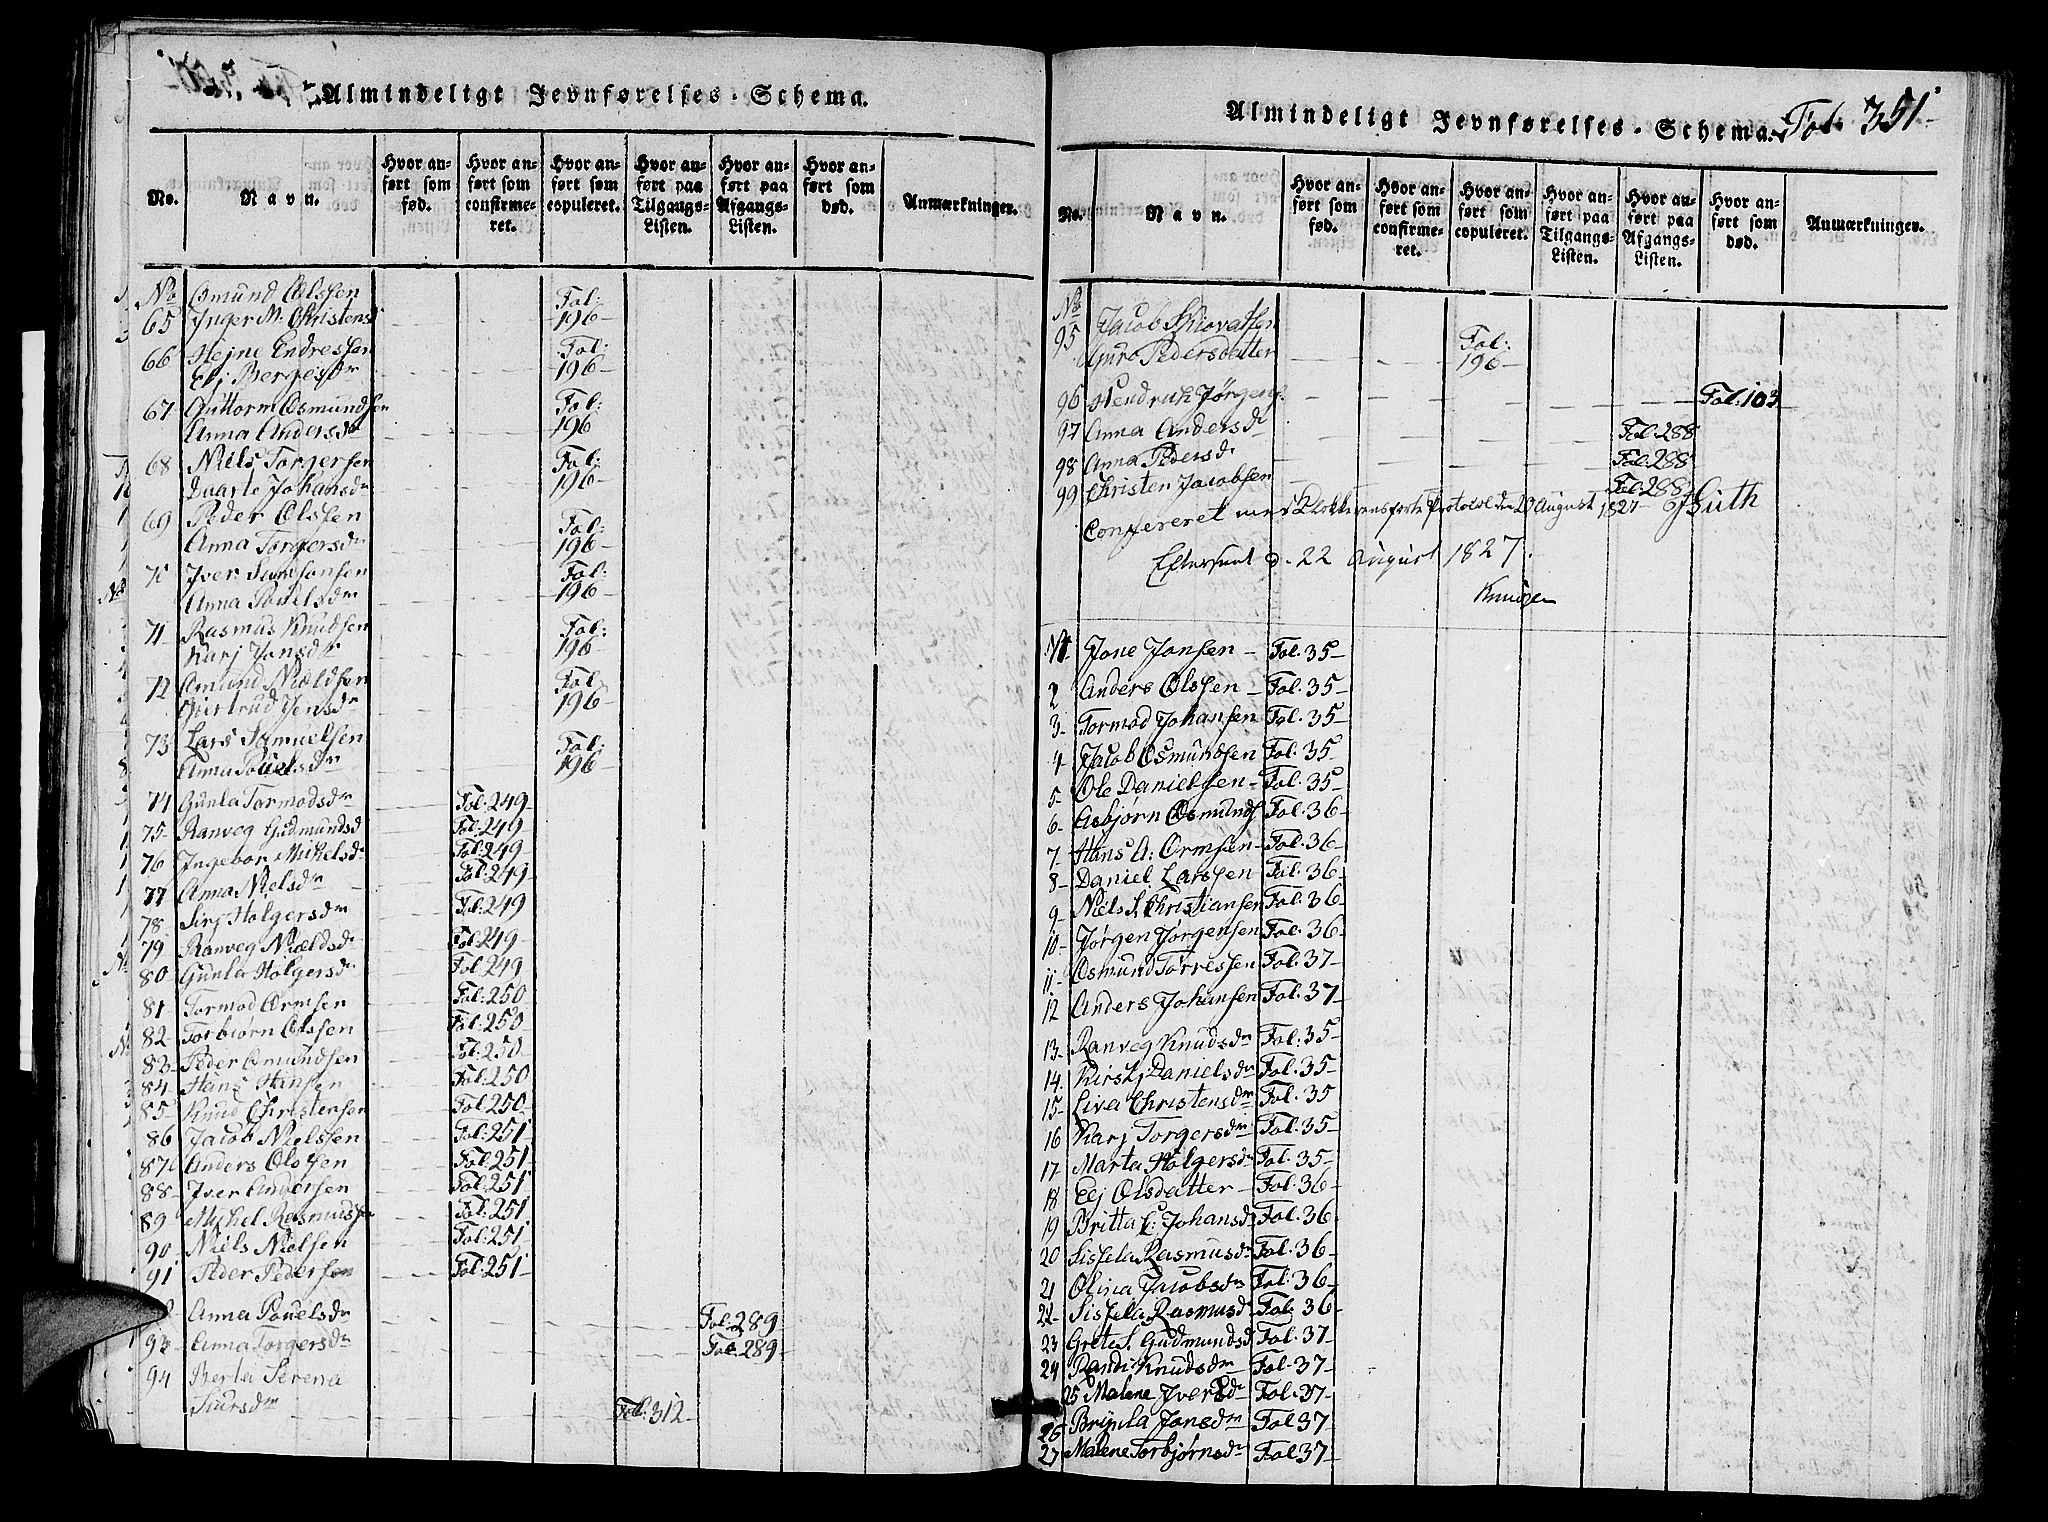 Almindeligt Jevnførelses-Schema.
No.
Navn.
Hvor anført som fød.
Hvor anført som confirmeret.
Hvor anført som copuleret.
Hvor anført paa Tilgangs-Listen.
Hvor anført paa Afgangs-Listen.
Hvor anført som død.
Anmærkninger.
No Osmund Olssen Fol:
65 Inger M: Christensd 196
66 Hejne Endressen Fol:
Elj Bergesdr 196
67 Guttorm Osmundsen Fol:
Anna Andersdr 196
68 Niels Torgersen Fol:
Johansdr 196
69 Peder Olssen Fol:
Anna Torgersdr 196
70 Iver Samsonsen Fol:
Anna Pouelsdr 196
71 Rasmus Knudsen Fol:
Karj Jonsdr 196
72 Omund Nieldsen Fol:
Giertrud Jensdr 196
73 Lars Samuelsen Fol:
Anna Pouelsdr 196
74 Gunla Tormodsdr Fol:249
75 Ranveg Gudmundsd Fol:249
76 Ingebor Mikelsdr Fol:249
77 Anna Nielsdr Fol:249
78 Sirj Holgersdr Fol:249
79 Ranveg Nieldsdr Fol:249
80 Gunla Holgersdr Fol:249
81 Tormod Ormsen Fol:250
82 Torbiørn Olssen Fol:250
83 Peder Omundsen Fol:250
84 Hans Hansen Fol:250
85 Knud Christensen Fol:250
86 Jacob Nielssen Fol:251
87 Anders Olssen Fol:251
88 Iver Andersen Fol:251
89 Mickel Rasmussen Fol:251
90 Niels Nielsen Fol:251
91 Peder Pedersen Fol:251
Anna Pouelsdr Fol:289
93 Anna Torgersdr Fol:289
94 Berta Serena
Siursdr Fol:312
Almindeligt Jevnførelses-Schema. Fol: 351
No.
Navn.
Hvor anført som fød.
Hvor anført som confirmeret.
Hvor anført som copuleret.
Hvor anført paa Tilgangs-Listen.
Hvor anført paa Afgangs-Listen.
Hvor anført som død.
Anmærkninger.
No
95 Jacob Fol:
Guro Pedersdatter 196
96 Hendrich Jørgens. Fol:103
97 Anna Andersdr Fol:288
98 Anna Pedersdr Fol:288
99 Christen Jacobsen Fol:288
Confereret med Klokkerens førte Protocol den 20 August 1821
Efterseet d. 22 August 1827.
Knudsen
No 1 Jone Jonsen Fol:35
2 Anders Olssen Fol:35
3 Tormod Johansen Fol:35
4 Jacob Osmundsen Fol:35
5 Ole Danielsen Fol:35
6 Asbjørn Osmunds Fol:36
7 Hans A: Ormsen Fol:36
8 Daniel Larssen Fol:36
9 Niels S. Christiansen Fol:36
10 Jørgen Jørgensen Fol:36
11 Osmund Torressen Fol:37
12 Anders Johansen Fol:37
13 Ranveg Knudsdr Fol:35
14 Kirstj Danielsdr Fol:35
15 Liva Christensdr Fol:35
16 Karj Torgersdr Fol:35
17 Marta Holgersdr Fol:35
18 Elj Olsdatter Fol:36
19 Britta E: Johansdr Fol:36
20 Sissela Rasmusdr Fol:36
21 Olina Jacobsdr Fol:36
22 Sissela Rasmusdr Fol:36
23 Grete S. Gudmundsd Fol:37
24 Randi Knudsdr Fol:37
25 Malene Iversdr Fol:37
26 Brynla Jonsdr Fol:37
27 Malene Torbjørnsdr Fol:37